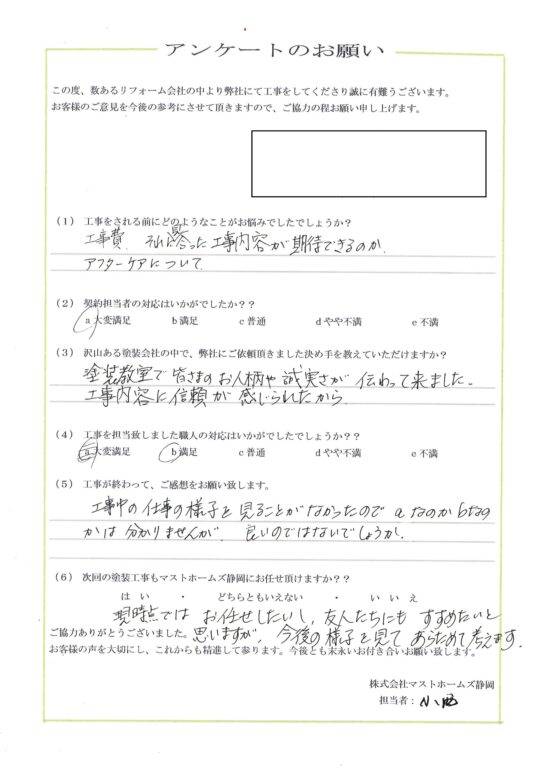 アンケートのお願い
この度、数あるリフォーム会社の中より弊社にて工事をしてくださり誠に有難うございます。
お客様のご意見を今後の参考にさせて頂きますので、ご協力の程お願い申し上げます。
(1) 工事をされる前にどのようなことがお悩みでしたでしょうか?
工事費. それに見合った工事内容が期待できるのか.
アフターケアについて.
(2) 契約担当者の対応はいかがでしたか??
a大変満足 b満足 c普通 dやや不満 e不満
(3) 沢山ある塗装会社の中で、弊社にご依頼頂きました決め手を教えていただけますか?
塗装教室で皆さまのお人柄や誠実さが伝わって来ました。
工事内容に信頼が感じられたから.
(4) 工事を担当致しました職人の対応はいかがでしたでしょうか??
a大変満足 b満足 c普通 dやや不満 e不満
(5) 工事が終わって、ご感想をお願い致します。
工事中の仕事の様子を見ることがなかったので aなのか bなの
かは分かりませんが、良いのではないでしょうか.
(6) 次回の塗装工事もマストホームズ静岡にお任せ頂けますか??
はい ・ どちらともいえない ・ いいえ
現時点では お任せしたいし、友人たちにも すすめたいと
ご協力ありがとうございました。思いますが、今後の様子を見て あらためて考えます.
お客様の声を大切にし、これからも精進して参ります。今後とも末永いお付き合いお願い致します。
株式会社マストホームズ静岡
担当者: